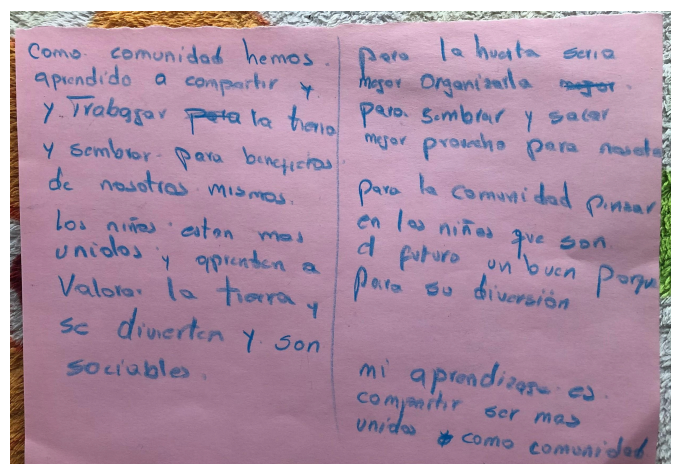 Como comunidad hemos
aprendido a compartir y
y Trabagar la tierra
y sembrar para beneficios
de nosotros mismos.
los niños estan mas
unidos y aprenden a
Valorar la tierra y
se divierten y son
sociables.
para la huerta seria
mejor Organizarla
para sembrar y sacar
mejor provecho para
para la comunidad pensar
en los niños que son
el futuro un buen parque
para su diversión
mi aprendizage es
compartir ser mas
unidos como comunidad